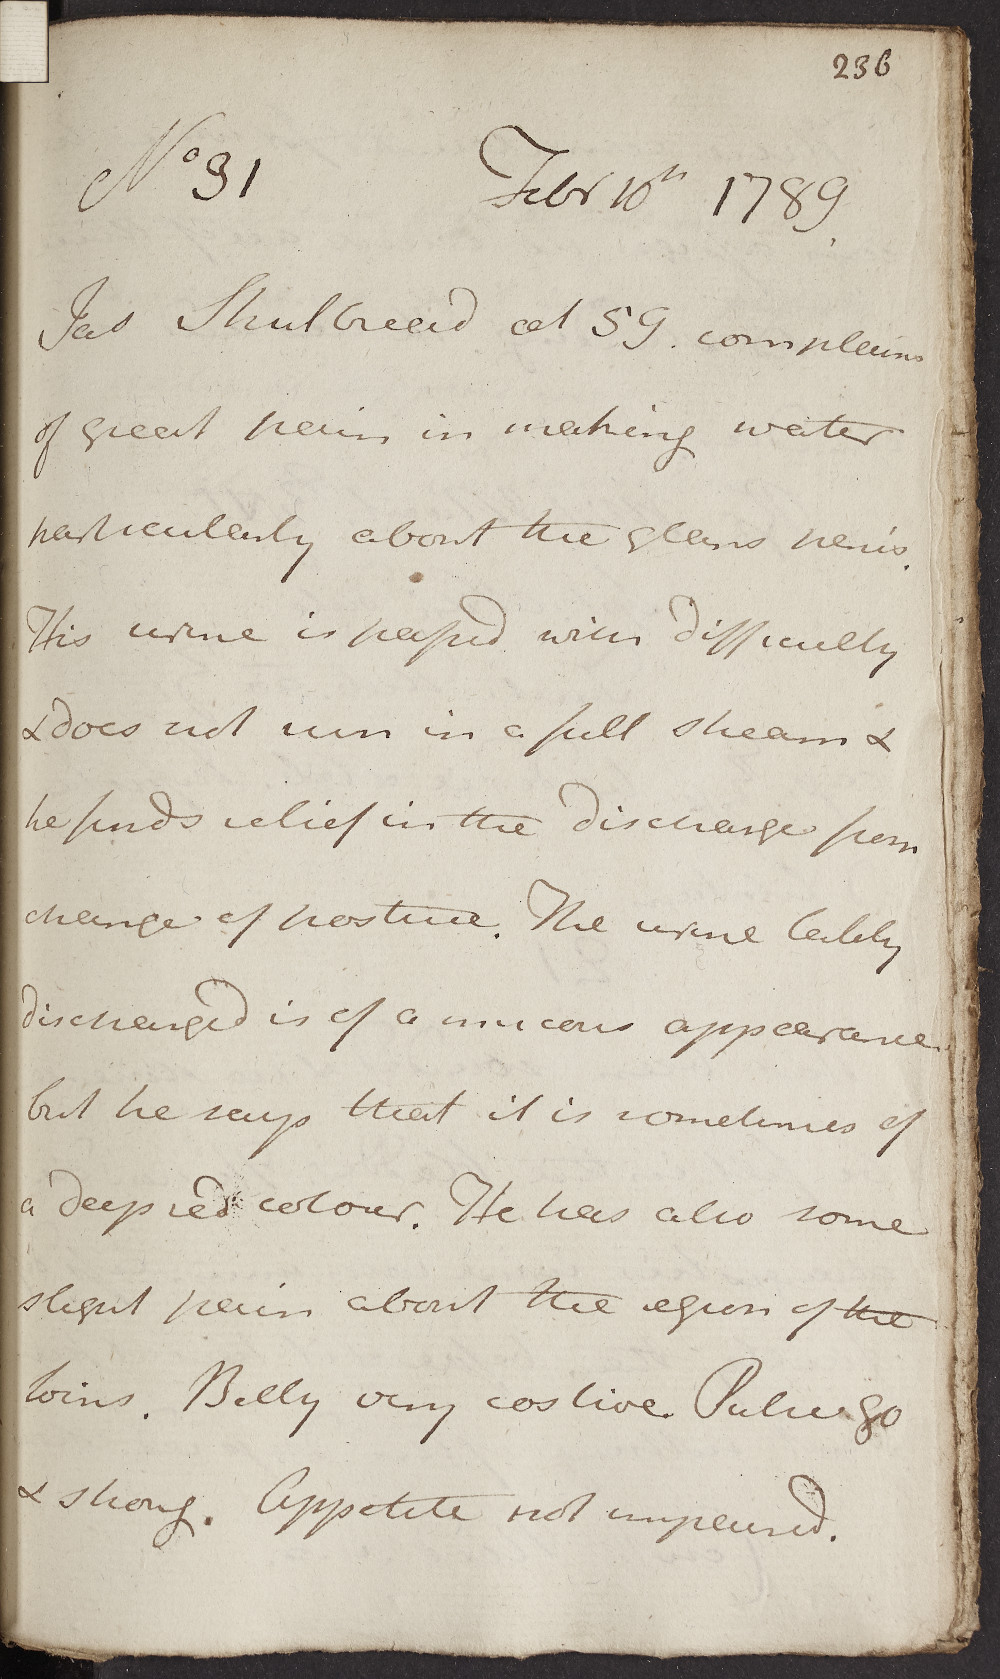 236
No 31 Febr 10th 1789.
Jas Shulbread aet 59. complains
of great pain in making water
particularly about the glans penis.
His urine is passed with difficulty
& does not run in a full stream &
he finds relief in the discharge from
change of posture. The urine lately
discharged is of a mucous appearance
but he says that it is sometimes of
a deep red colour. He has also some
slight pain about the region of the
loins. Belly very costive. Pulse 90
& strong. Appetite not impaired.